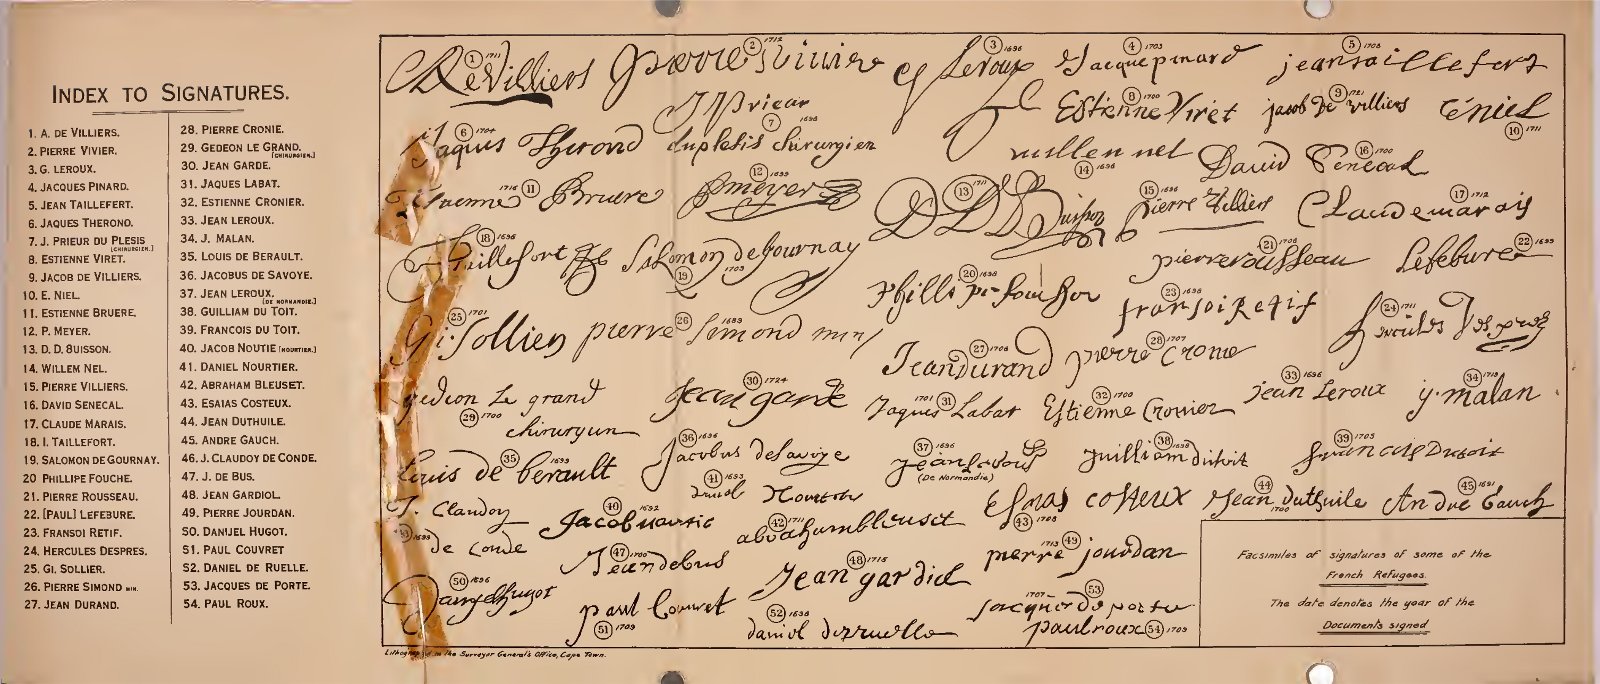 INDEX TO SIGNATURES.
1. A. DE VILLIERS.
2. PIERRE VIVIER.
3. G. LEROUX.
4. JACQUES PINARD.
5. JEAN TAILLEFERT.
6. JAQUES THEROND.
7. J. PRIEUR DU PLESIS
[CHIRURGIEN.]
8. ESTIENNE VIRET.
9. JACOB DE VILLIERS.
10. E. NIEL.
11. ESTIENNE BRUERE.
12. P. MEYER.
13. D. D. BUISSON.
14. WILLEM NEL.
15. PIERRE VILLIERS.
16. DAVID SENECAL.
17. CLAUDE MARAIS.
18. I. TAILLEFORT.
19. SALOMON DE GOURNAY.
20 PHILLIPE FOUCHE.
21. PIERRE ROUSSEAU.
22. [PAUL] LEFEBURE.
23. FRANSOI RETIF.
24. HERCULES DESPRES.
25. GI. SOLLIER.
26. PIERRE SIMOND MIN.
27. JEAN DURAND.
28. PIERRE CRONIE.
29. GEDEON LE GRAND.
[CHIRURGIEN.]
30. JEAN GARDE.
31. JAQUES LABAT.
32. ESTIENNE CRONIER.
33. JEAN LEROUX.
34. J. MALAN.
35. LOUIS DE BERAULT.
36. JACOBUS DE SAVOYE.
37. JEAN LEROUX.
[DE NORMANDIE.]
38. GUILLIAM DU TOIT.
39. FRANCOIS DU TOIT.
40. JACOB NOUTIE [NOURTIER.]
41. DANIEL NOURTIER.
42. ABRAHAM BLEUSET.
43. ESAIAS COSTEUX.
44. JEAN DUTHUILE.
45. ANDRE GAUCH.
46. J. CLAUDOY DE CONDE.
47. J. DE BUS.
48. JEAN GARDIOL.
49. PIERRE JOURDAN.
50. DANIJEL HUGOT.
51. PAUL COUVRET
52. DANIEL DE RUELLE.
53. JACQUES DE PORTE.
54. PAUL ROUX.
1 1711 ADeVilliers
2 1712 pierre Vivier
3 1696 G Leroux
4 1703 Jacque pinard
5 1708 jean taillefert
6 1704 Jaques Therond
J Prieur
7 1698
duplesis chirurgien
8 1700 Estienne Viret
9 1721 jacob De villiers
E niel
10 1711
1716 11 Etienne Bruere
12 1699 P meyer
13 1711 D D Buisson
willem nel
14 1696
15 1696 pierre Villiers
16 1700 David Senecal
17 1712 Claude marais
18 1696 Taillefort
Salomon de Gournay
19 1703
20 1698 Phillipe fouche
21 1706 pierre rousseau
22 1699 Lefebure
23 1698 fransoi Retif
24 1711 Hercules Des prez
25 1701 Gi: Sollier
26 1699 pierre Simond min
27 1708 Jean Durand
28 1707 pierre Cronie
gedeon Le grand
29 1700 chirurgien
30 1724 Jean garde
1701 31 Jaques Labat
32 1700 Estienne Cronier
33 1696 jean Leroux
34 1713 y. malan
35 1699 Louis de berault
36 1696 Jacobus de Savoye
37 1696 jean Leroux
(De Normandie)
38 1698 guilliam dutoit
39 1703 francois Dutoit
40 1692 Jacob noutie
41 1693 daniel Nourtier
42 1711 abrahambleuset
Esaias costeux
43 1708
44 1700 jean duthuile
45 1691 Andre Gauch
J. Claudoy
1699 de Conde
47 1700 Jean debus
48 1715 Jean gardiol
1713 49 pierre jourdan
50 1696 Danijel hugot
paul Couvret
51 1709
52 1698
daniel deruelle
1707 53 jacque de porte
paul roux 54 1709
Facsimiles of signatures of some of the
French Refugees.
The date denotes the year of the
Documents signed
Lithographed in the Surveyor General's Office, Cape Town.